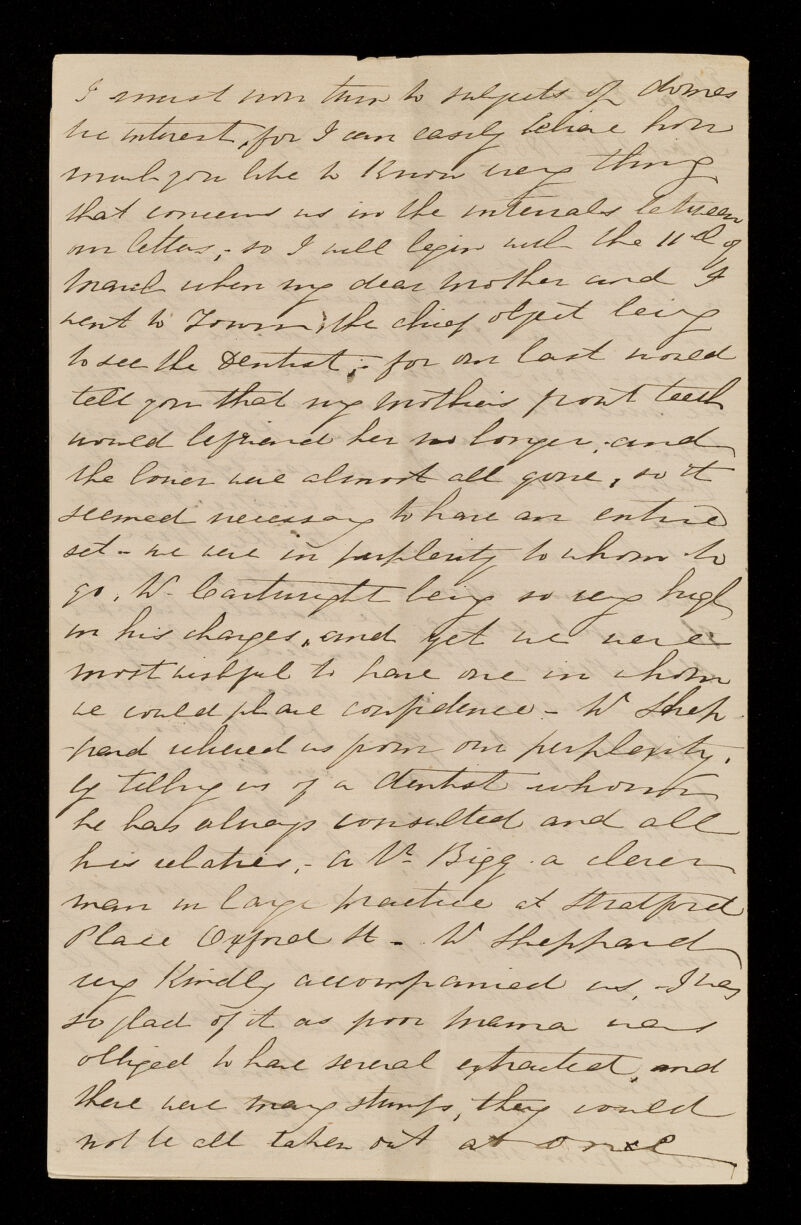 I must now turn to subjects of domes
tic interest, for I can easily believe how
much you like to know every thing
that concerns us in the intervals between
our letters, - so I will begin with the 11th of
March when my dear mother and I
went to Town, the chief object being
to see the Dentist, - for our last would
tell you that my mother's front teeth
would befriend her no longer, and
the lower were almost all gone, so it
seemed necessary to have an entire
set - we were in perplexity to whom to
go, Mr Cartwright being so very high
in his charges, and yet we were
most wishful to have one in whom
we could place confidence - Mr Shep
pard relieved us from our perplexity,
by telling us of a dentist whom
he has always consulted and all
his relatives, - a Mr Bigg a clever
man in large practice at Stratford
Place Oxford St - Mr Sheppard
very kindly accompanied us, - I was
so glad of it as poor Mama was
obliged to have several extracted, and
there were many stumps, they could
not be all taken out at once